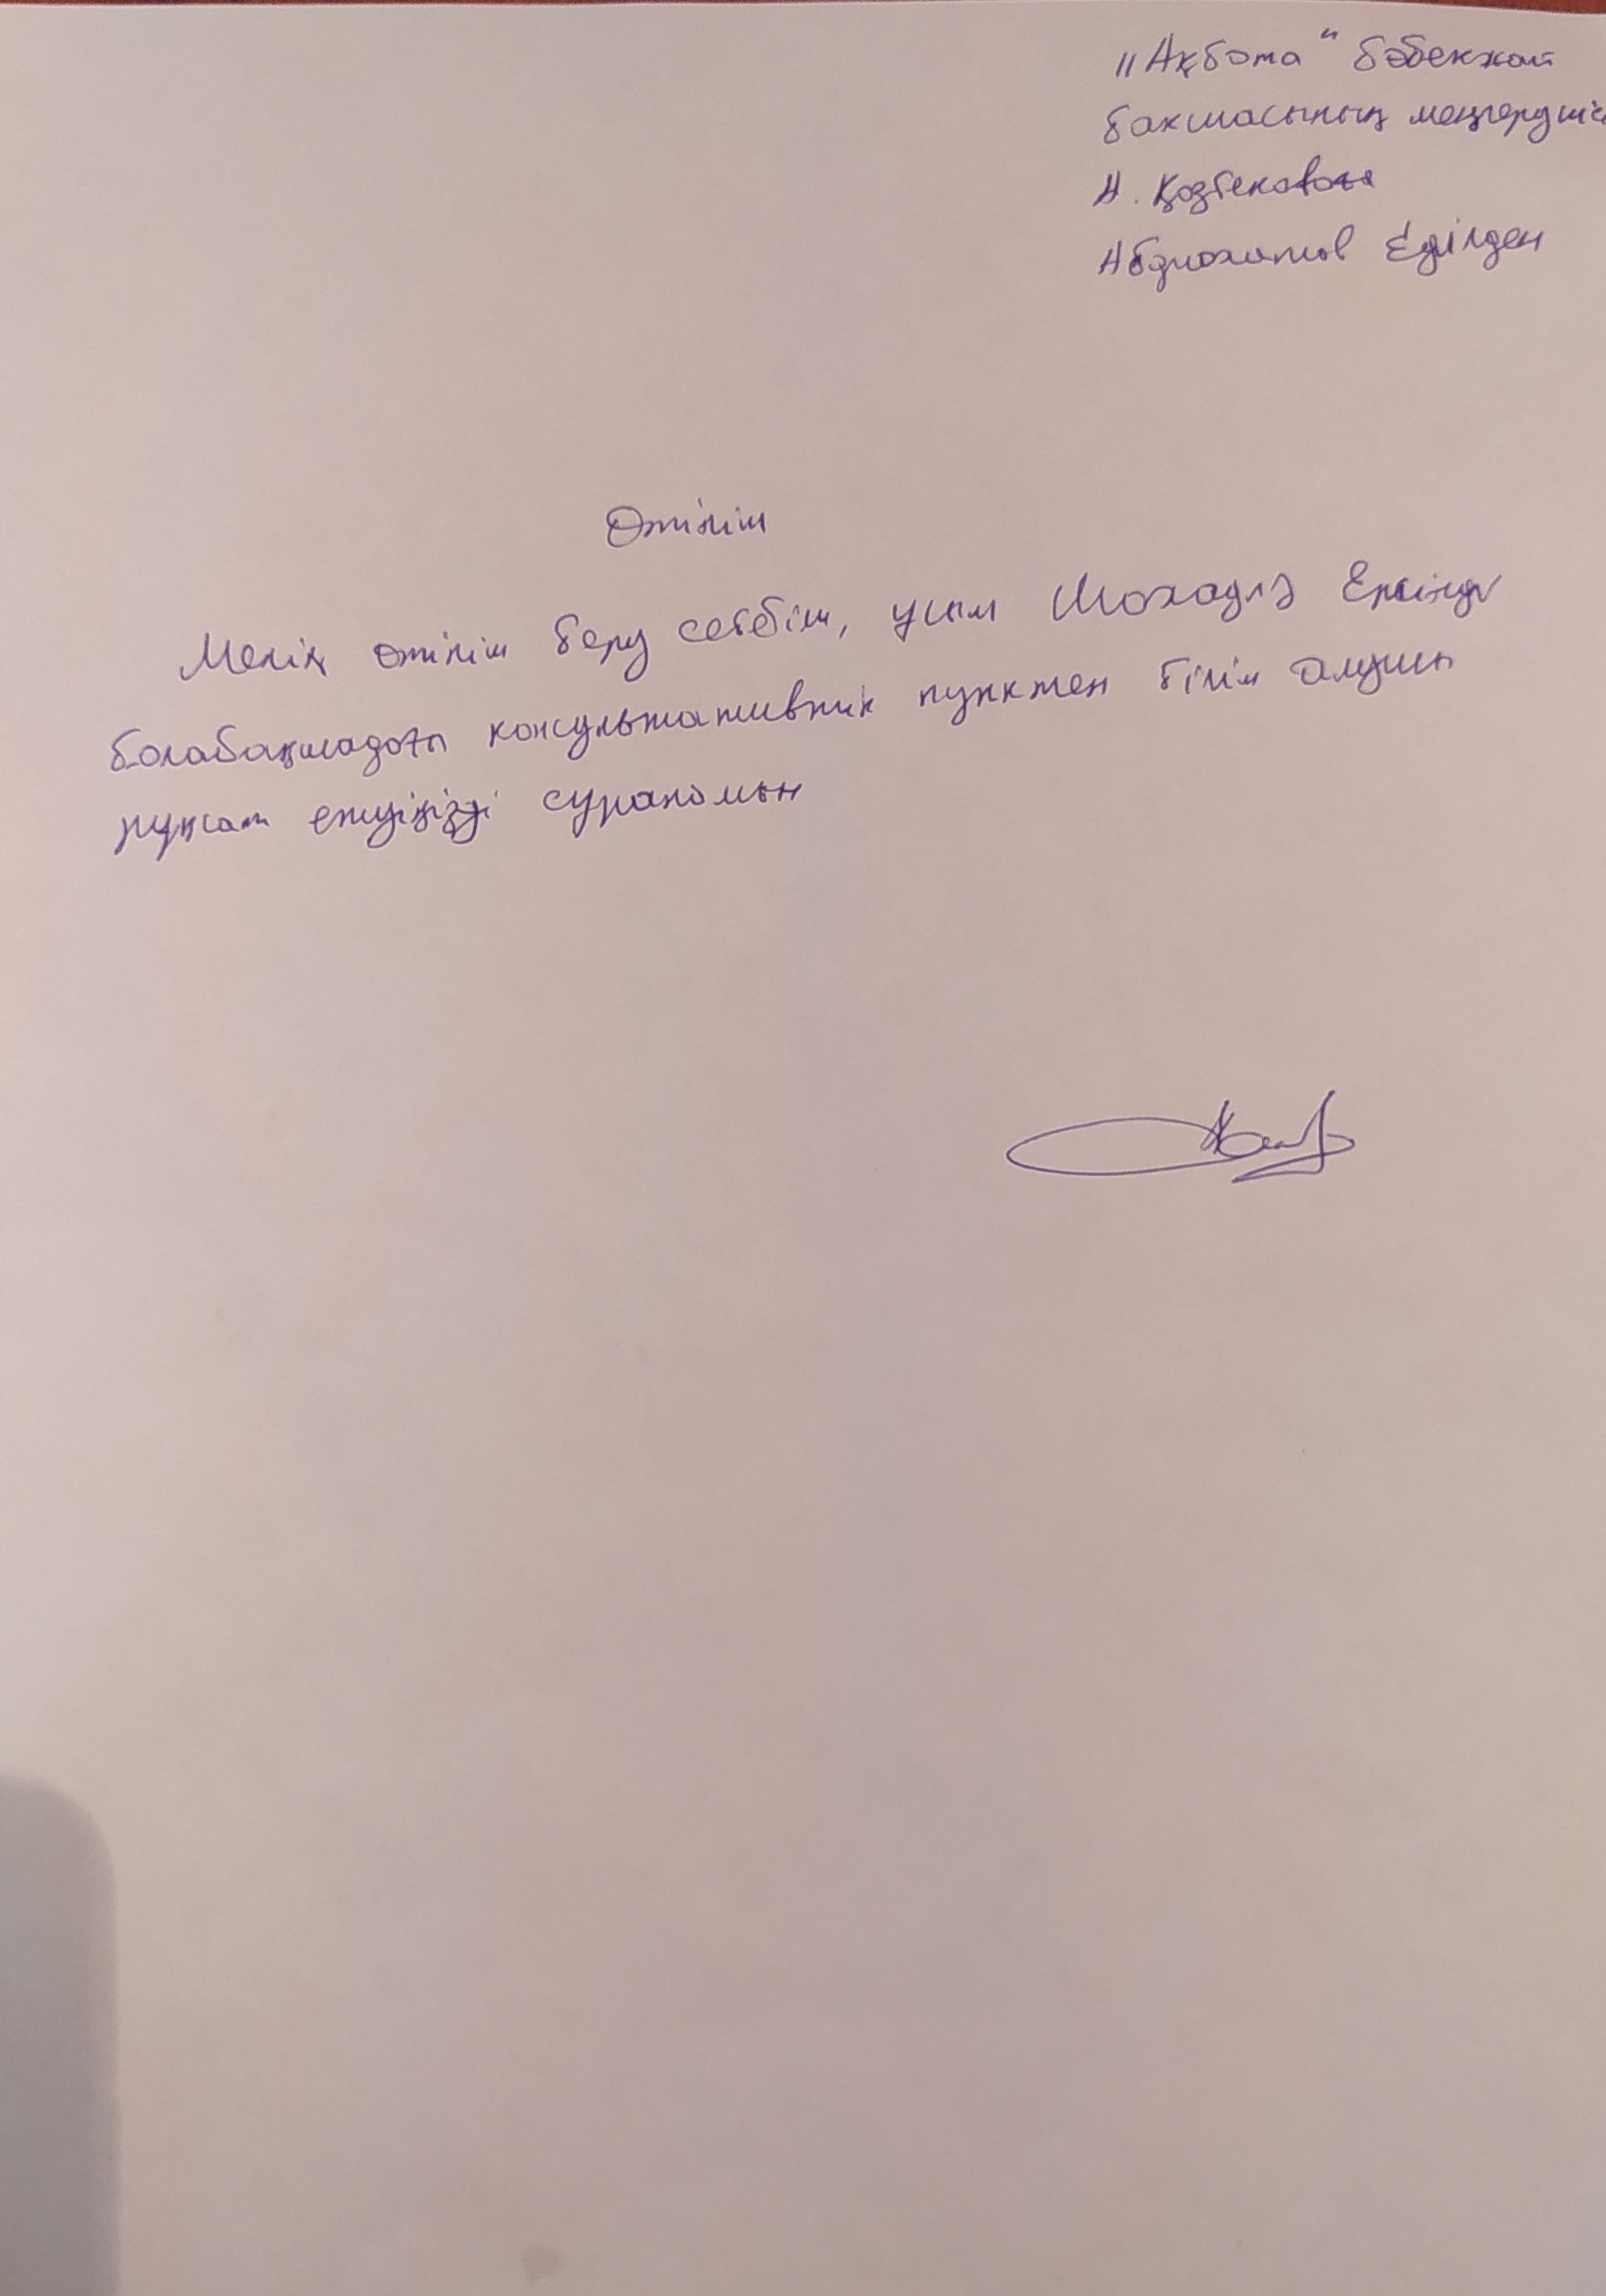 "Ақбота" бөбекжай
бақшасының меңгерушісі
А. Қозбековаға
Еділден
Өтініш
Менің өтініш беру себебім, ұлым
балабақшадағы консультативтік пунктен білім алуына
рұқсат етуіңізді сұраймын